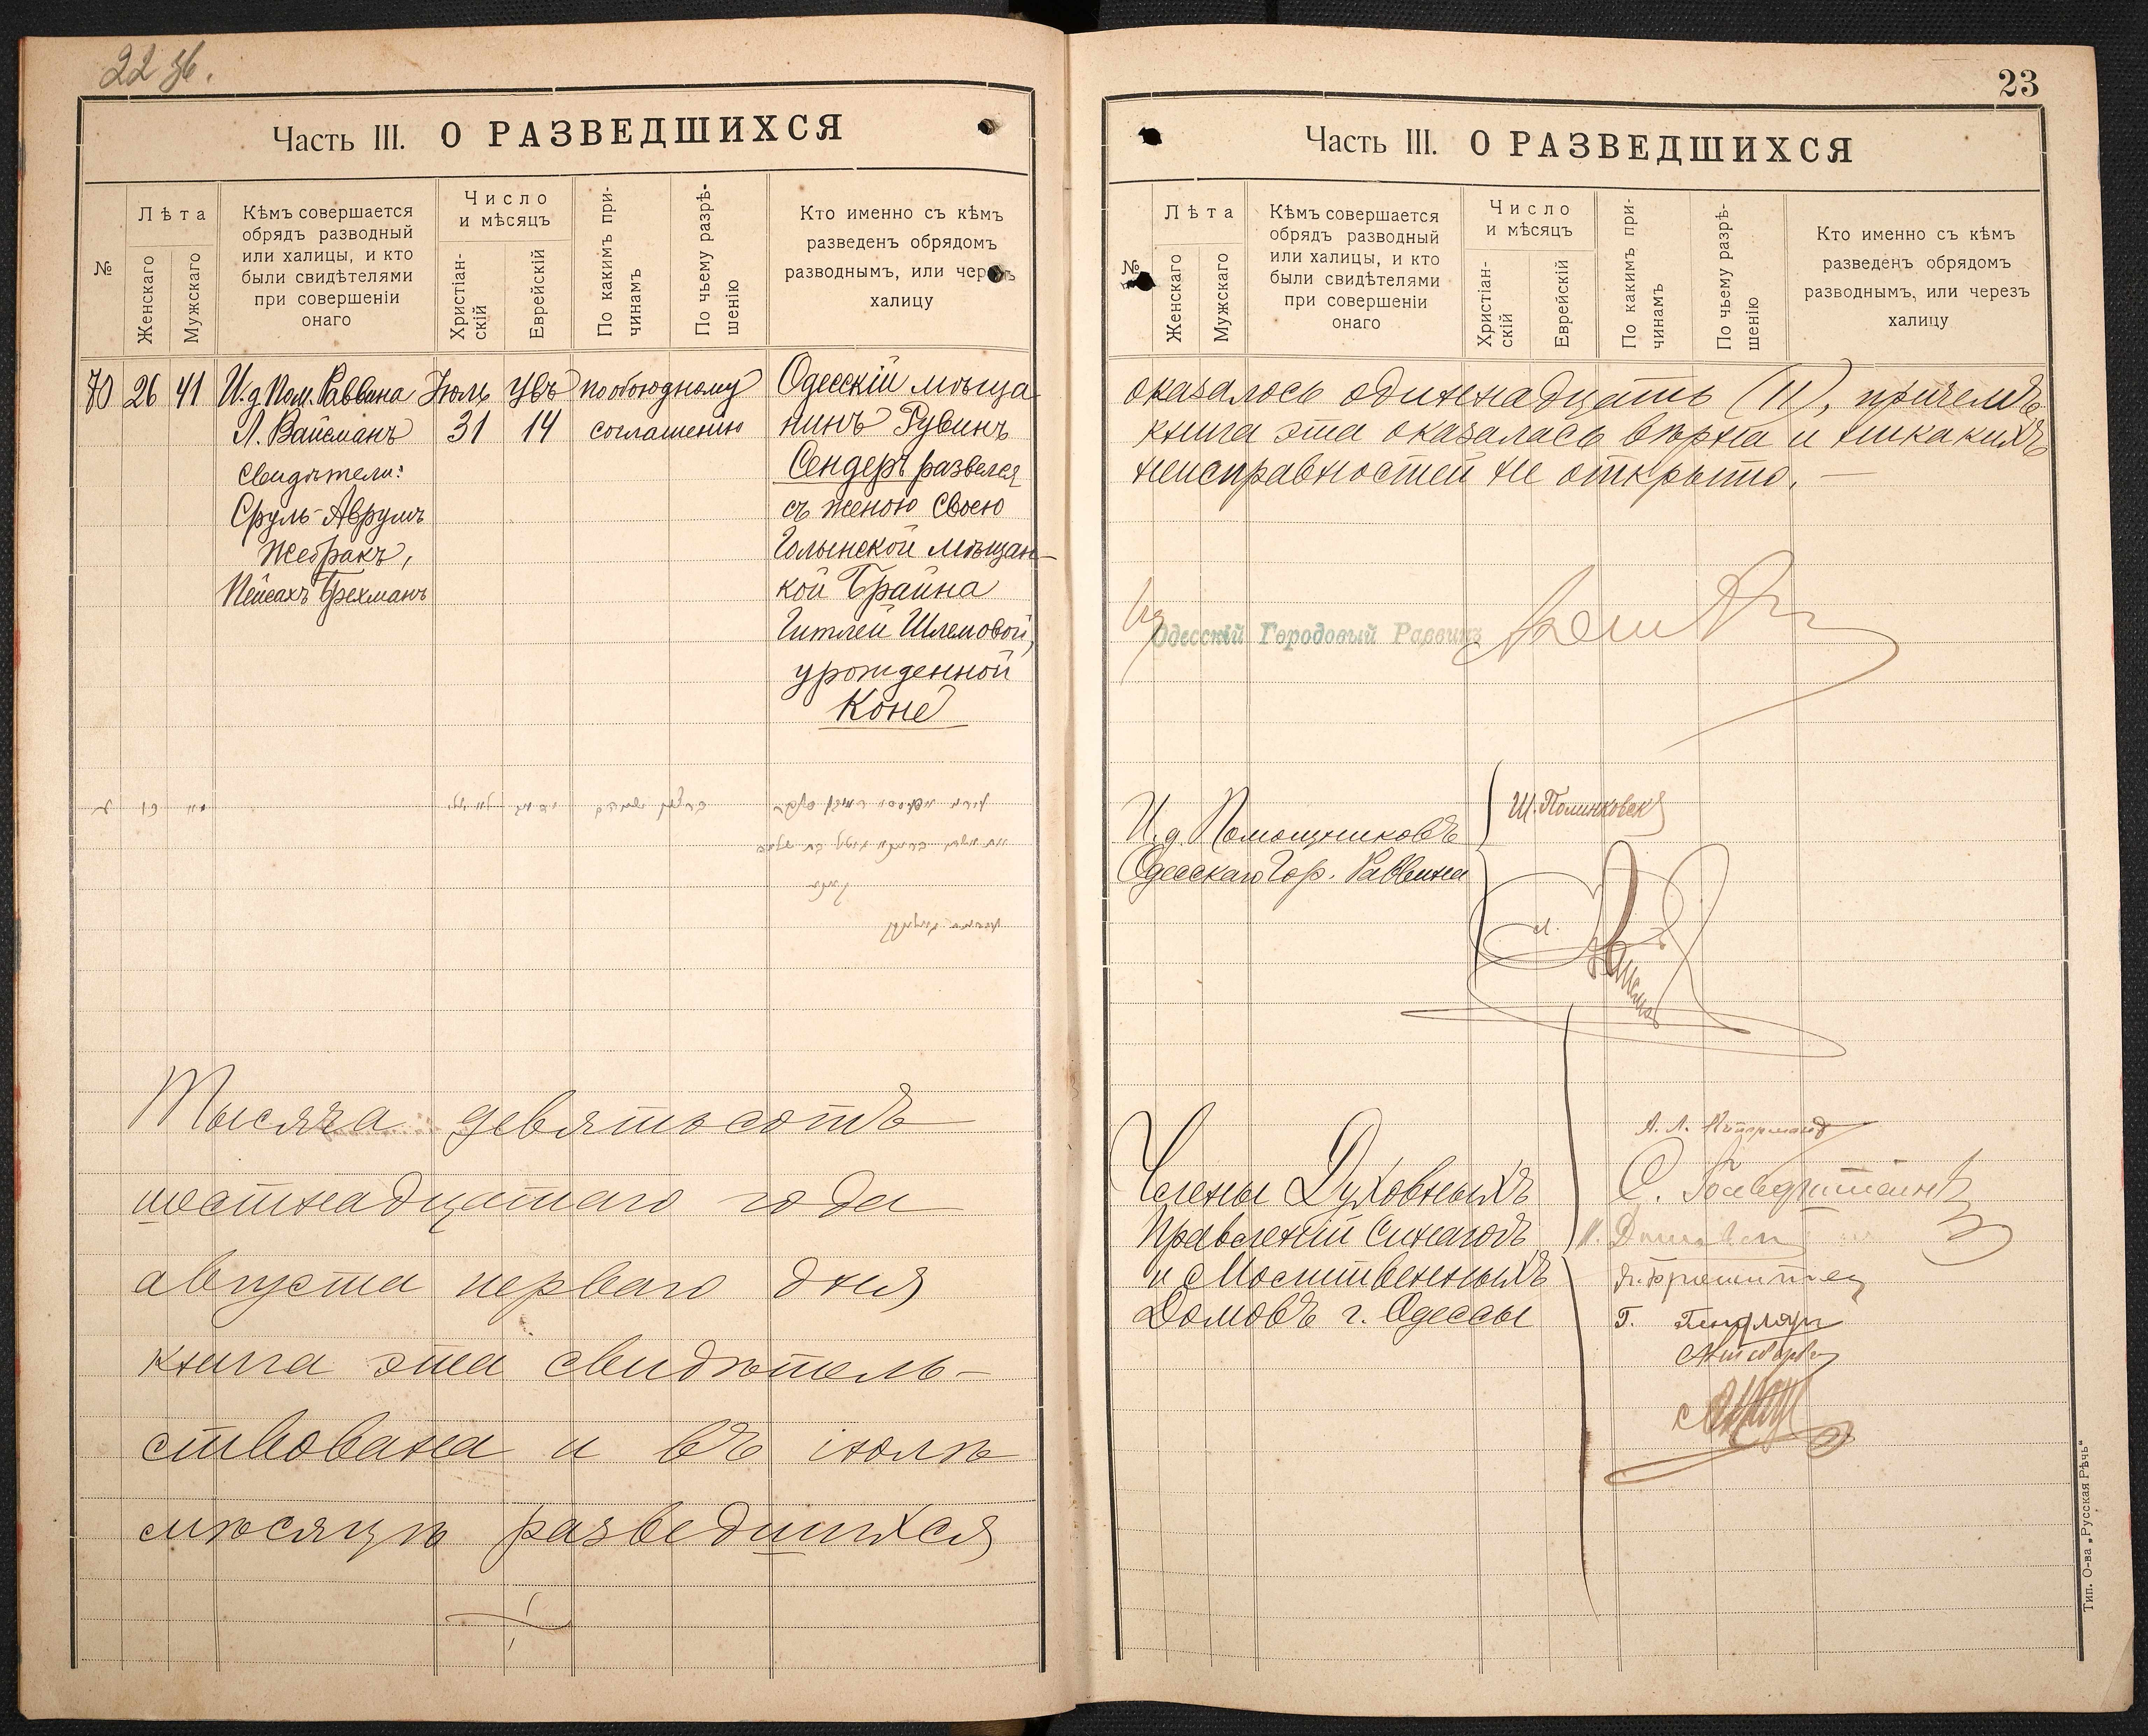 22 об.
Часть III. О РАЗВЕДШИХСЯ
№
Лѣта
Женскаго
Мужскаго
Кѣмъ совершается
обрядъ разводный
или халицы, и кто
были свидѣтелями
при совершеніи
онаго
Число
и мѣсяцъ
Христіан-
скій
Еврейскій
По какимъ при-
чинамъ
По чьему разрѣ-
шенію
Кто именно съ кѣмъ
разведенъ обрядомъ
разводнымъ, или черезъ
халицу
70 26 41
И. д. Пом. Раввина
Л. Вайсманъ
Свидѣтели:
Сруль-Аврумъ
Жебракъ,
Пейсахъ Брехманъ
Іюль
31
Увъ
14
по обоюдному
соглашенію
Одесскій мѣща
нинъ Рувинъ
Сендеръ развелся
съ женою своею
Голынской мѣщан-
кой Брайна
Гитлей Шлемовой,
урожденной
Коне
Тысяча девятьсотъ
шестнадцатаго года
августа перваго дня
книга эта свидѣтель-
ствована и въ іюлѣ
мѣсяцѣ разведшихся
23
Часть III. О РАЗВЕДШИХСЯ
№
Лѣта
Женскаго
Мужскаго
Кѣмъ совершается
обрядъ разводный
или халицы, и кто
были свидѣтелями
при совершеніи
онаго
Число
и мѣсяцъ
Христіан-
скій
Еврейскій
По какимъ при-
чинамъ
По чьему разрѣ-
шенію
Кто именно съ кѣмъ
разведенъ обрядомъ
разводнымъ, или черезъ
халицу
оказалось одиннадцать (11), причемъ
книга эта оказалась вѣрна и никакихъ
неисправностей не открыто. —
Одесскій Городовый Раввинъ
И. д. Помощниковъ
Одесскаго Гор. Раввина
Ш. Полинковск
Члены Духовныхъ
Правленій Синагогъ
и Молитвенныхъ
Домовъ г. Одессы
С. Гольдштейнъ
Тип. О-ва „Русская Рѣчь“